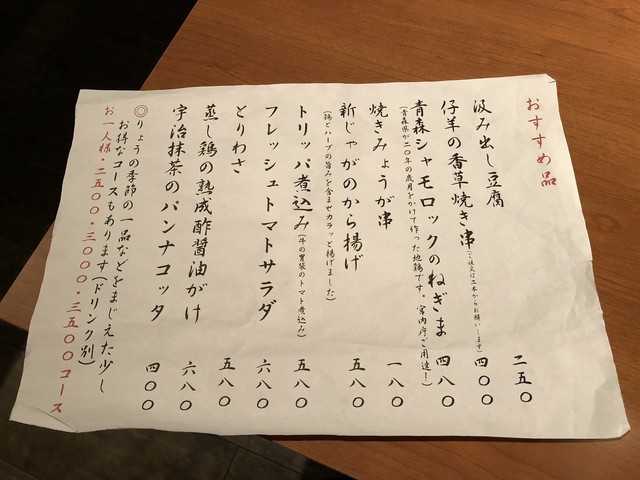 おすすめ品
汲み出し豆腐 二五〇
仔羊の香草焼き串(ご注文は二本からお願いします) 四〇〇
青森シャモロックのねぎま 四八〇
(青森県が二〇年の歳月をかけて作った地鶏です。宮内庁ご用達!)
焼きみょうが串 一八〇
新じゃがのから揚げ 五八〇
(鶏とハーブの旨みを含ませカラッと揚げました)
トリッパ煮込み(牛の胃袋のトマト煮込み) 五八〇
フレッシュトマトサラダ 六八〇
とりわさ 五八〇
蒸し鶏の熟成酢醤油がけ 六八〇
宇治抹茶のパンナコッタ 四〇〇
◎りょうの季節の一品などをまじえた少し
お得なコースもあります(ドリンク別)
お一人様・二五〇〇・三〇〇〇・三五〇〇コース